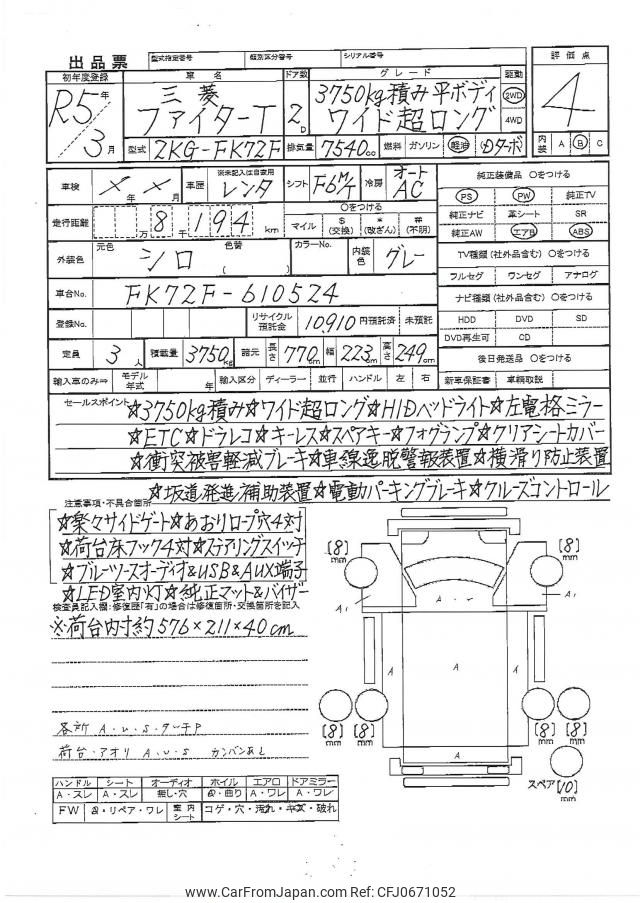 出品票
型式指定番号 類別区分番号 シリアル番号
初年度登録 車名 ドア数 グレード 駆動 評価点
R5年 3月
三菱 ファイターT
2D
3750kg積み平ボディ ワイド超ロング
2WD 4WD
4
型式 2KG-FK72F 排気量 7540cc 燃料 ガソリン 軽油 Dターボ
内装 A B C
車検 X年X月 車歴 ※未記入は自家用 レンタ シフト F6M/T 冷房 オートAC
純正装備品 〇をつける
PS PW 純正TV
純正ナビ 革シート SR
純正AW エアB ABS
走行距離 8万千194km
〇をつける
マイル $(交換) *(改ざん) #(不明)
外装色 元色 シロ 色替 ( ) カラーNo. 内装色 グレー
TV種類(社外品含む)〇をつける
フルセグ ワンセグ アナログ
車台No. FK72F-610524
ナビ種類(社外品含む)〇をつける
HDD DVD SD
DVD再生可 CD
登録No. リサイクル預託金 10,910円預託済 未預託
定員 3人 積載量 3750kg 諸元 長さ 770cm 幅 223cm 高さ 249cm
後日発送品 〇をつける
新車保証書 車輌取説
輸入車のみ⇒ モデル年式 年 輸入区分 ディーラー 並行 ハンドル 左 右
セールスポイント
☆3750kg積み☆ワイド超ロング☆HIDヘッドライト☆左電格ミラー
☆ETC☆ドラレコ☆キーレス☆スペアキー☆フォグランプ☆クリアシートカバー
☆衝突被害軽減ブレーキ☆車線逸脱警報装置☆横滑り防止装置
☆坂道発進補助装置☆電動パーキングブレーキ☆クルーズコントロール
注意事項・不具合箇所
☆楽々サイドゲート☆あおりロープ穴4対
☆荷台床フック4対☆ステアリングスイッチ
☆ブルーツースオーディオ&USB&AUX端子
☆LED室内灯☆純正マット&バイザー
検査員記入欄:修復歴「有」の場合は修復箇所・交換箇所を記入
※荷台内寸約576×211×40cm
各所 A・U・S・タッチP
荷台・アオリ A・U・S カンバンあと
[8]mm [8]mm
A1 A A1
A A A
[8]mm [8]mm [8]mm [8]mm
A
スペア [10]mm
ハンドル シート オーディオ ホイル エアロ ドアミラー
A・スレ A・スレ 無し・穴 曲り A・ワレ A・ワレ
FW リペア・ワレ 室内シート コゲ・穴・汚れ・キズ・破れ
www.CarFromJapan.com Ref: CFJ0671052